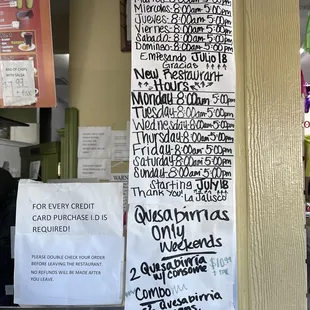 Miercoles 8:00am-5:00pm
Jueves 8:00am-5:00pm
Viernes 8:00am-5:00pm
Sabado 8:00am-5:00pm
Domingo 8:00am-5:00pm
Empesando Julio 18
Gracias
New Restaurant
Hours
Monday 8:00am-5:00pm
Tuesday 8:00am-5:00pm
Wednesday 8:00am-5:00pm
Thursday 8:00am-5:00pm
Friday 8:00am-5:00pm
Saturday 8:00am-5:00pm
Sunday 8:00am-5:00pm
Starting July 18
Thank You! La Jalisco
Quesabirrias
Only
Weekends
2 Quesabirria
w/ consome
$10.99
+ TAX
Combo
Quesabirria
FOR EVERY CREDIT
CARD PURCHASE I.D IS
REQUIRED!
PLEASE DOUBLE CHECK YOUR ORDER
BEFORE LEAVING THE RESTAURANT.
NO REFUNDS WILL BE MADE AFTER
YOU LEAVE.